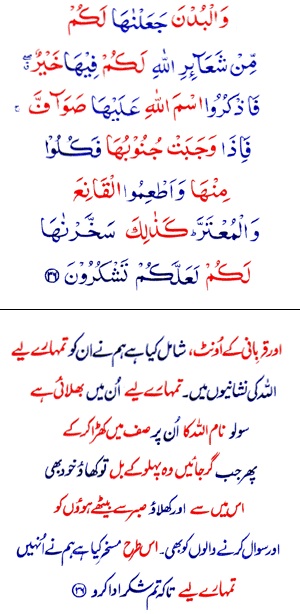 وَالْبُدْنَ جَعَلْنٰهَا لَكُمْ
مِّنْ شَعَآئِرِ اللّٰهِ لَكُمْ فِيْهَا خَيْرٌ ۖ
فَاذْكُرُوا اسْمَ اللّٰهِ عَلَيْهَا صَوَآفَّ ۚ
فَاِذَا وَجَبَتْ جُنُوْبُهَا فَكُلُوْا
مِنْهَا وَاَطْعِمُوا الْقَانِعَ
وَالْمُعْتَرَّ ؕ كَذٰلِكَ سَخَّرْنٰهَا
لَكُمْ لَعَلَّكُمْ تَشْكُرُوْنَ ﴿۳۶﴾
اور قربانی کے اُونٹ، شامل کیا ہے ہم نے ان کو تمہارے لیے
اللہ کی نشانیوں میں۔ تمہارے لیے اُن میں بھلائی ہے
سو لو نام اللہ کا اُن پر صف میں کھڑا کر کے
پھر جب گر جائیں وہ پہلو کے بل تو کھاؤ خود بھی
اس میں سے اور کھلاؤ صبر سے بیٹھے ہوؤں کو
اور سوال کرنے والوں کو بھی۔ اس طرح مسخر کیا ہے ہم نے اُنہیں
تمہارے لیے تاکہ تم شکر ادا کرو ﴿۳۶﴾